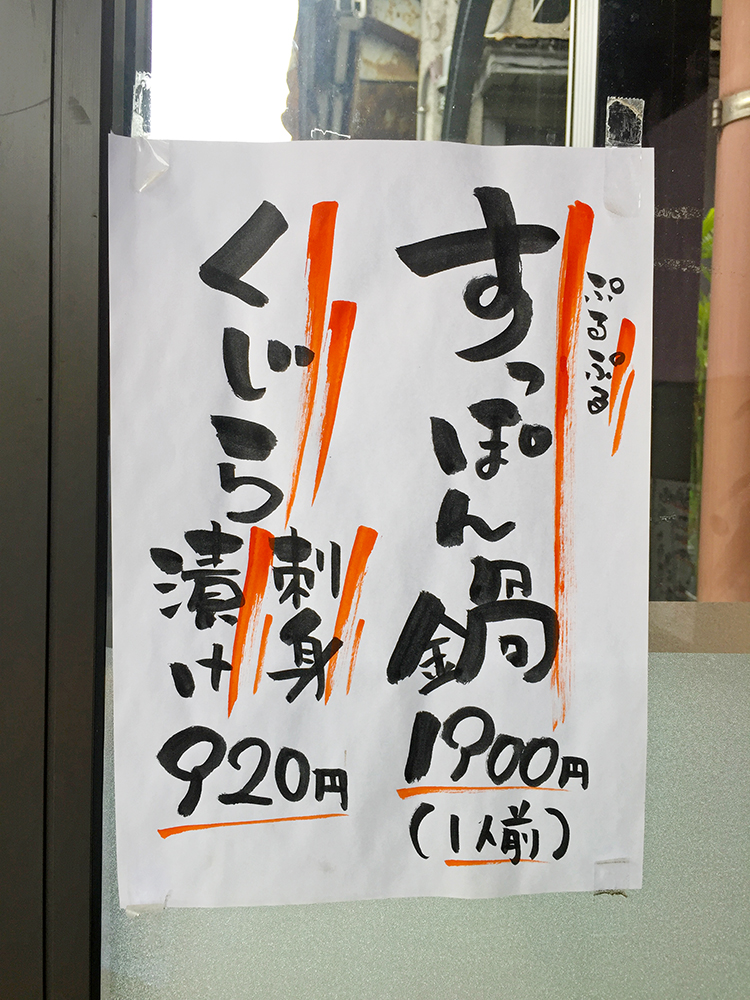 ぷるぷる
すっぽん鍋
1900円
(1人前)
くじら
刺身
漬け
920円